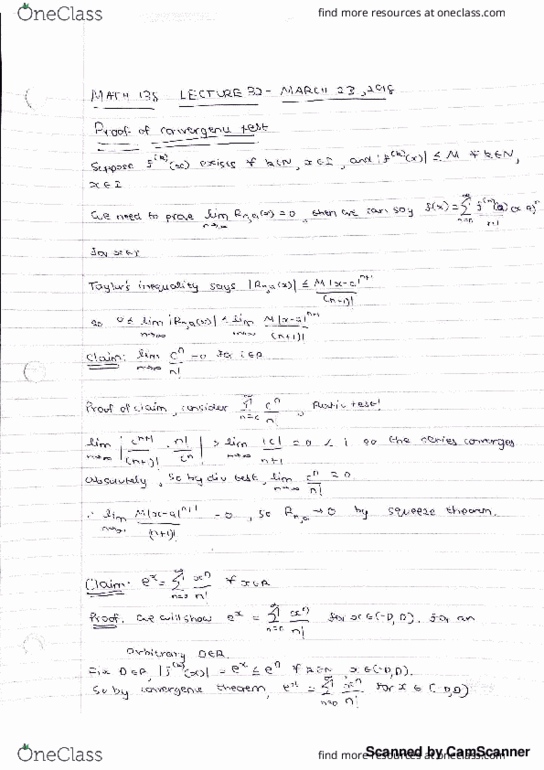 OneClass
find more resources at oneclass.com
MATH 138 LECTURE 32 - MARCH 23, 2018
Proof of convergence test
Suppose f^(k)(x) exists ∀ k∈N, x∈I, and |f^(k)(x)| ≤ M ∀ k∈N,
x∈I
We need to prove lim n→∞ R_n,a(x) = 0, then we can say f(x) = ∑ n=0 ∞ f^(n)(a)(x-a)^n / n!
for x∈I
Taylor's inequality says |R_n,a(x)| ≤ M|x-a|^(n+1) / (n+1)!
so 0 ≤ lim n→∞ |R_n,a(x)| ≤ lim n→∞ M|x-a|^(n+1) / (n+1)!
Claim: lim n→∞ c^n / n! = 0 for c∈R
Proof of claim, consider ∑ n=0 ∞ c^n / n!, Ratio test!
lim n→∞ | c^(n+1) / (n+1)! · n! / c^n | = lim n→∞ |c| / n+1 = 0 < 1 so the series converges
absolutely, so by div test, lim n→∞ c^n / n! = 0
∴ lim n→∞ M|x-a|^(n+1) / (n+1)! = 0, so R_n,a → 0 by squeeze theorem.
Claim: e^x = ∑ n=0 ∞ x^n / n! ∀ x∈R
Proof. We will show e^x = ∑ n=0 ∞ x^n / n! for x∈(-D, D). For an
arbitrary D∈R.
Fix D∈R, |f^(k)(x)| = e^x ≤ e^D ∀ k∈N, x∈(-D, D).
So by convergence theorem, e^x = ∑ n=0 ∞ x^n / n! for x ∈ (-D, D)
Scanned by CamScanner
OneClass
find more resources at oneclass.com